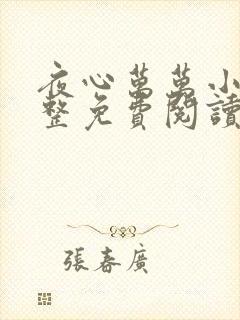 夜心萬萬小
整免費閱讀
張春廣